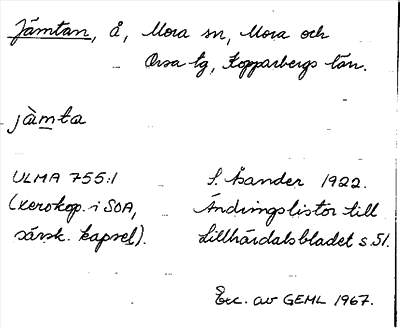 Jämtan, å, Mora sn, Mora och
Orsa tg, Kopparbergs län.
jàmta
ULMA 755:1
S. Åsander 1922.
(xerokop. i SOA,
Ändringslistor till
särsk. kapsel).
Lillhärdalsbladet s. 51.
Exc. av GEML 1967.